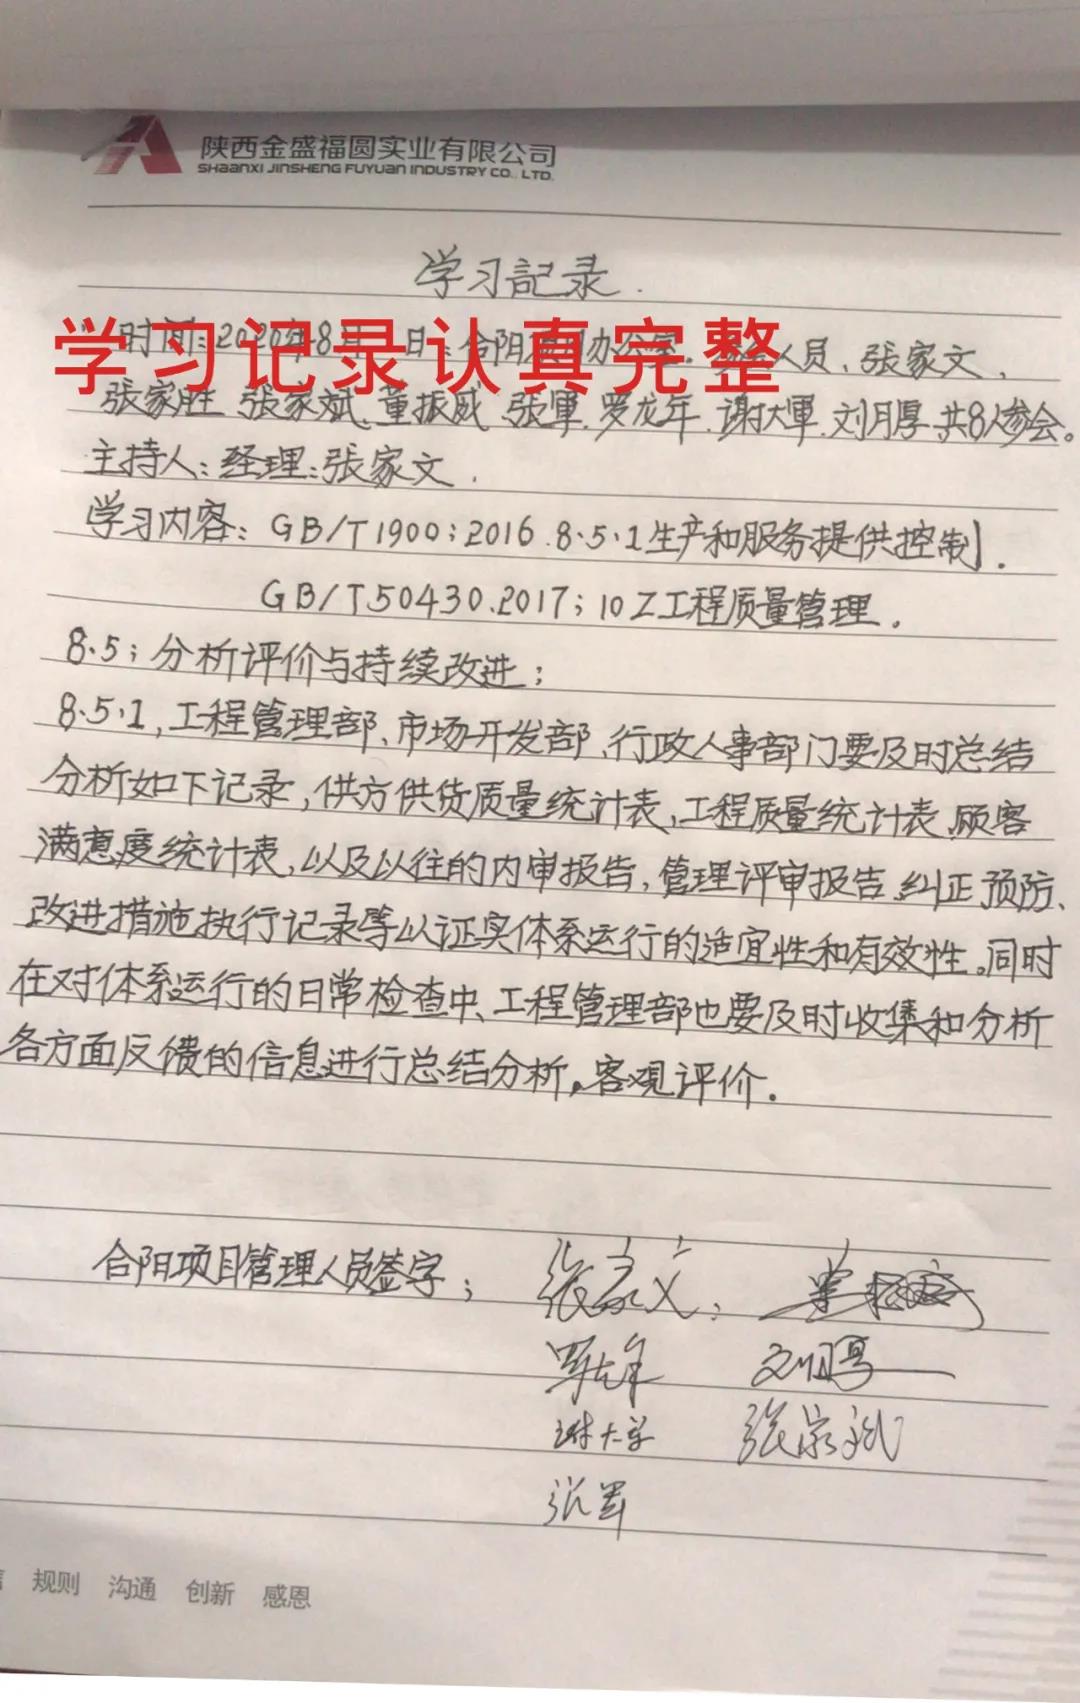 陕西金盛福圆实业有限公司
SHAANXI JINSHENG FUYUAN INDUSTRY CO., LTD.
学习記录.
学习记录认真完整
时间:2020年8月 日:合阳项目办公室. 人员、张家文、
张家胜、张家斌、董振威、张軍、罗龙年、谢大軍、刘月厚、共8人参会。
主持人:经理:张家文.
学习内容:GB/T1900:2016.8·5·1生产和服务提供控制.
GB/T50430.2017;10Z工程质量管理.
8·5;分析评价与持续改进;
8·5·1,工程管理部、市场开发部、行政人事部门要及时总结
分析如下记录,供方供货质量统计表,工程质量统计表、顾客
满意度统计表,以及以往的内审报告,管理评审报告、纠正、预防、
改进措施执行记录等以证实体系运行的适宜性和有效性。同时
在对体系运行的日常检查中、工程管理部也要及时收集和分析
各方面反馈的信息进行总结分析。客观评价.
合阳项目管理人员签字;
张家文
张家斌
张軍
规则 沟通 创新 感恩